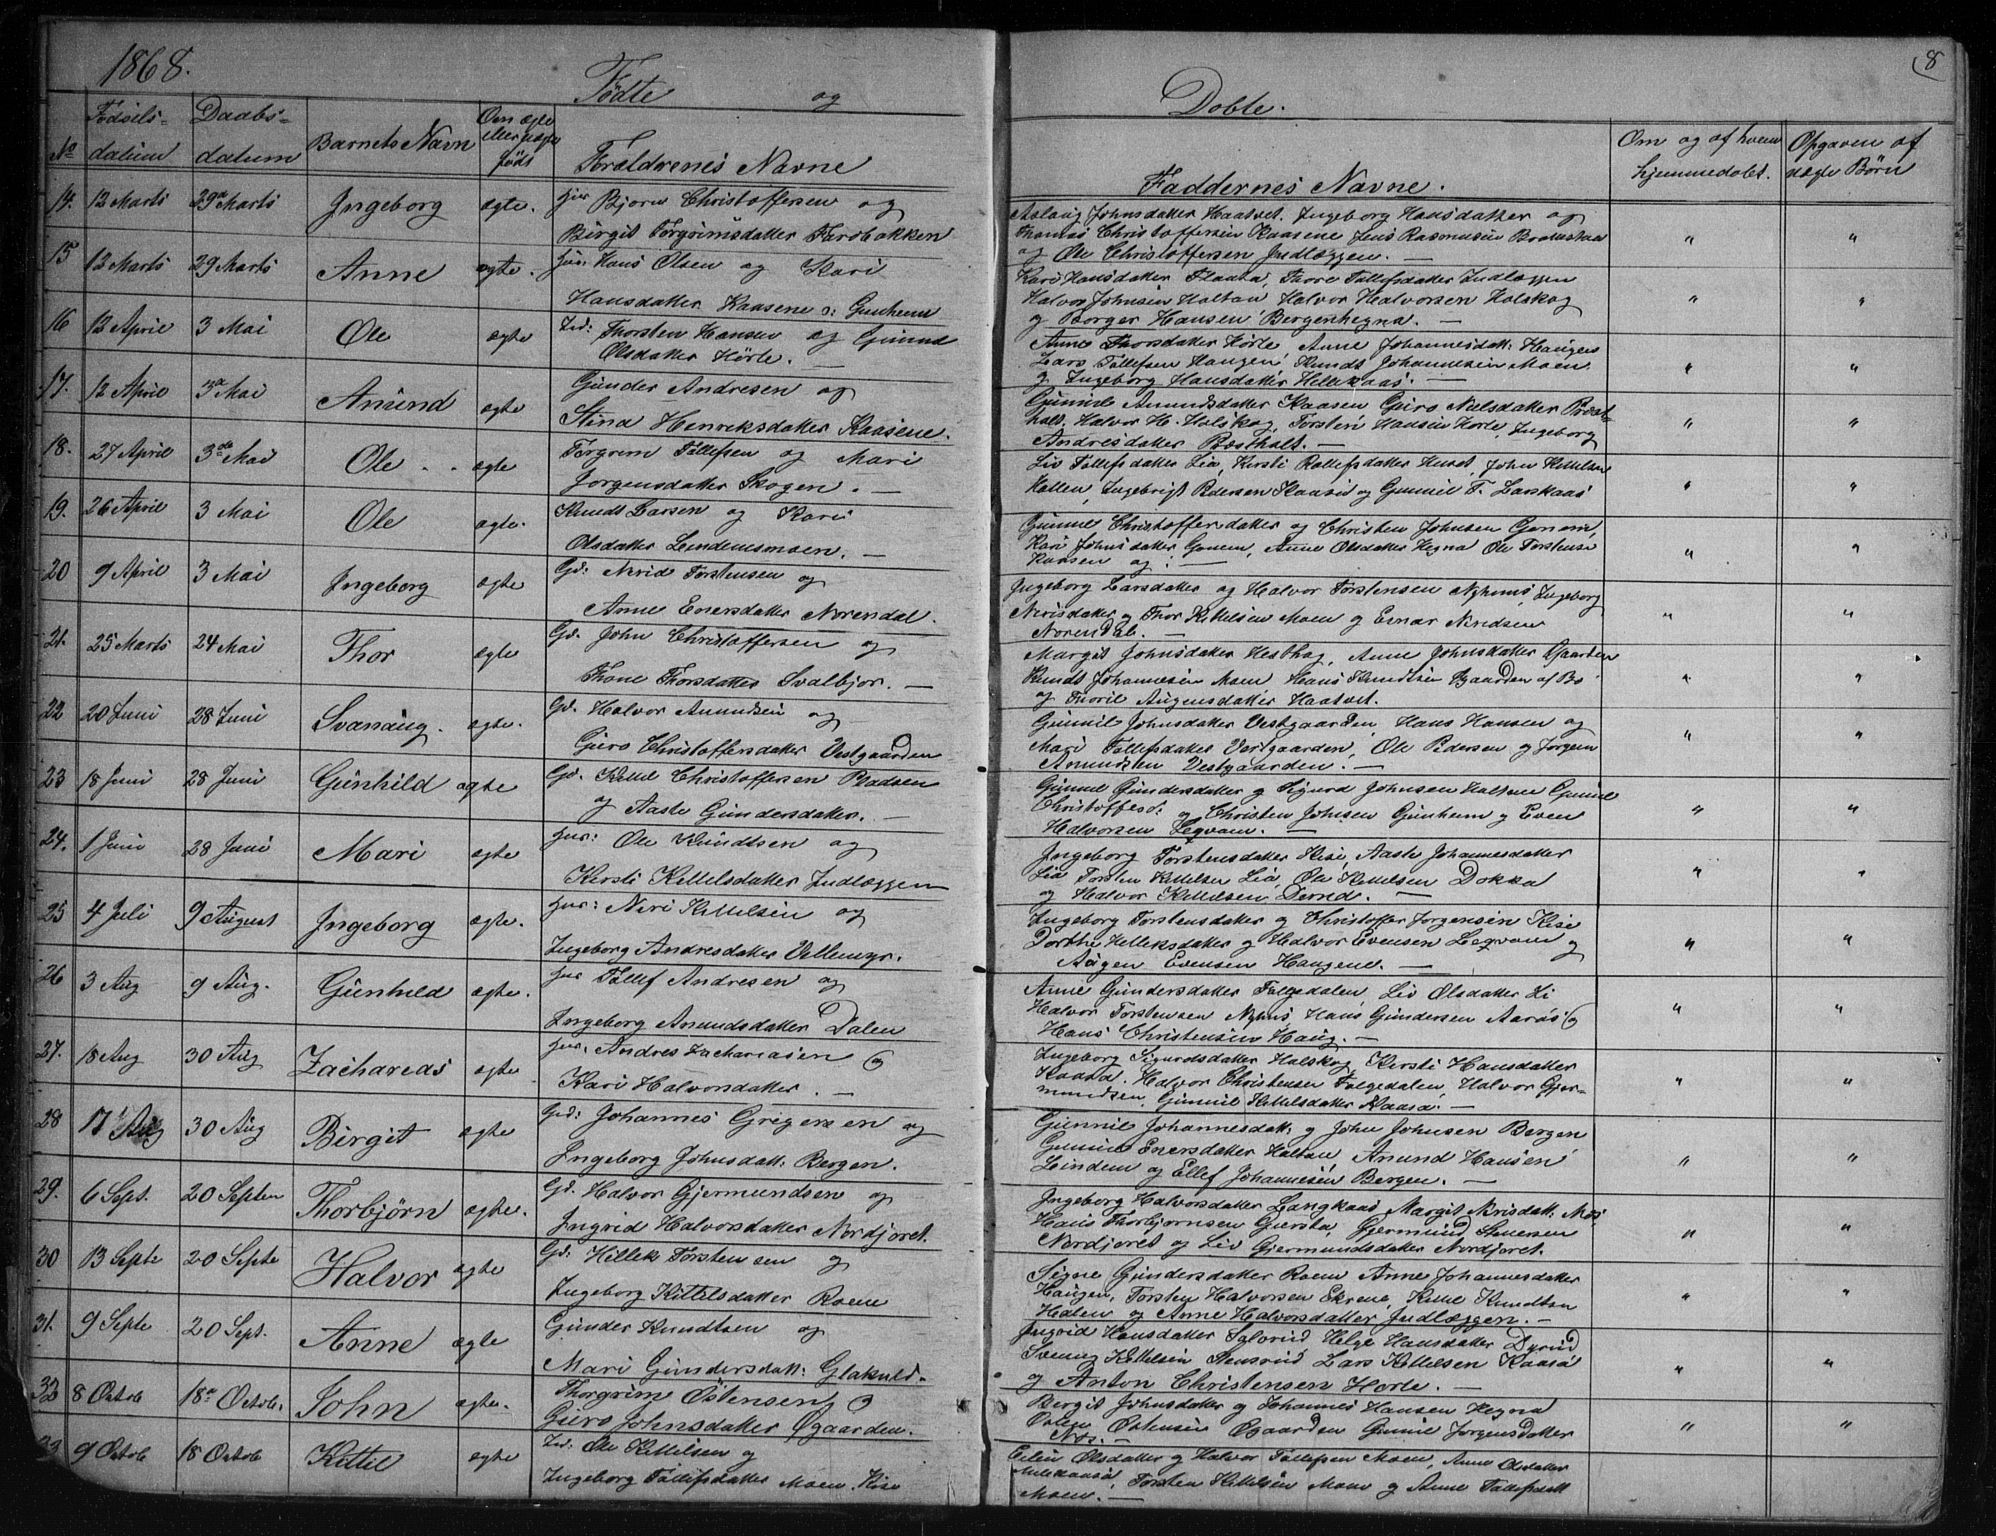 1868.
8
Födte og Dobte.
No
Fodsels-
datum
Daabs-
datum
Barnets Navn
Om ægte
eller uægte
födt
Foraldrenes Navne
Faddernes Navne.
Om og af hvem
hjemmedobt.
Opgaven af
uægte Börn
14. 12 Marts 29de Marts Ingeborg ægte. Bjorn Christoffersen og
Birgit Torgrimsdatter
Aslaug Johnsdatter Haatvet. Ingeborg Hansdatter og
Thomas Christoffersen Kaasene Jens Rasmusen
og Ole Christoffersen Indlæggen. —
15 12 Marts 29 Marts Anne ægte. Hans Olsen og Kari
Hansdatter Kaasene o: Gunheim
Kari Hansdatter Flaata, Thore Tollefsdatter Indlæggen
Halvor Johnsen Haltan Halvor Halvorsen Holskog
og Borger Hansen Bergenhegna. —
16 12 April 3 Mai Ole ægte Ind: Thorsten Hansen og Gunnd
Olsdatter Hörte. —
Anne Thorsdatter Hörte Anne Johannesdatt: Haugen
Lars Tollefsen Haugen, Knudt Johannesen Moen
og Ingeborg Hansdatter Hellikaas. —
17. 12 April 3de Mai Amund ægte Gunder Andresen og
Stina Henriksdatter Kaasene.
Gunnil Amundsdatter Kaasen Guro Nielsdatter
Halvor H. Holskog, Torsten Hansen Horte, Ingeborg
Andresdatter Bæstholt. —
18. 27 April 3de Mai Ole ægte Torgrim Tollefsen og Mari
Jorgensdatter Skogen. —
Liv Tollefsdatter Lia, Kersti Rollefsdatter John Kittelsen
Hollen, Ingebrigt Pedersen Kaasa og Gunnil T. Larskaas
19. 26 April 3 Mai Ole ægte. Knudt Larsen og Kari
Olsdatter Lendemsmoen. —
Gunnil Christoffersdatter og Christen Johnsen Gonem,
Kari Johnsdatter Gonem, Anne Olsdatter Hegna Ole Torstense
Kaasen og: —
20 9 April 3 Mai Ingeborg ægte Gd: Nerid Torstensen og
Anne Enersdatter Norendal.
Ingeborg Larsdatter og Halvor Torstensen Nyhuus, Ingeborg
Nerisdatter og Thor Kittelsen Moen og Einar Neridsen
Norendal. —
21. 25 Marts 24 Mai Thor ægte Gd. John Christoffersen og
Thone Thorsdatter Svalbjor. —
Margit Johnsdatter Hesthag, Anne Johnsdatter Gaarden
Knudt Johannesen Moen Hans Knudtsen Gaarden af Bo
og Thoril Augensdatter Haatvet.
22 20 Juni 28 Juni Svanaug. ægte. Gd. Halvor Amundsen og
Guro Christoffersdatter Vestgaarden
Gunnil Johnsdatter Vestgaarden, Hans Hansen og
Mari Tollefsdatter Vestgaarden, Ole Pedersen og Jorgen
Amundsen Vestgaarden. —
23 18 Juni 28 Juni Gunhild ægte Gd. Kittel Christoffersen Pladsen
og Aaste Gundersdatter. —
Gunnil Gundersdatter og Sigurd Johnsen Haltan Gunnil
Christoffersd: og Christen Johnsen Gunhem og Even
Halvorsen Legvam. —
24. 1 Juni 28 Juni Mari ægte Hus: Ole Knudtsen og
Kersti Kittelsdatter Indlæggen
Ingeborg Torstensdatter Kise, Aaste Johannesdatter
Lia Torsten Kittelsen Lia, Ole Kittelsen Dokka
og Halvor Kittelsen Dernd. —
25 4 Juli 9 August Ingeborg ægte. Hus: Neri Kittelsen og
Ingeborg Andresdatter Vellemyr.
Ingeborg Torstensdatter og Christoffer Jorgensen Kise
Dorthe Helleksdatter og Halvor Evensen Legvam og
Augen Evensen Haugene. —
26 3 Aug 9 Aug. Gunhild ægte. Hus Tollef Andresen og
Ingeborg Amundsdatter Dalen
Anne Gundersdatter Folgedalen, Liv Olsdatter Li
Halvor Torstensen Nyhus Hans Gundersen Aaraas og
Hans Christensen Haug. —
27. 18 Aug 30 Aug Zacharias ægte Hus. Andres Zachariasen og
Kari Halvorsdatter. —
Ingeborg Sigurdsdatter Holskog, Kersti Hansdatter
Kaasa. Halvor Christensen Folgedalen, Halvor Gjer-
mundsen, Gunnil Kittelsdatter Kaasa. —
28 17 Aug 30 Aug Birgit ægte Gd: Johannes Grigersen og
Ingeborg Johnsdatt: Bergen.
Gunnil Johannesdatt: og John Johnsen Bergen
Gunnil Enersdatter Haltan Amund Hansen
Lindem og Ellef Johannesen Bergen. —
29. 6 Sept. 20 Septen Thorbjörn ægte. Gd. Halvor Gjermundsen og
Ingrid Halvorsdatter Nordjoret.
Ingeborg Halvorsdatter Langkaas Margit Nerisdatt: Næs
Hans Thorbjornsen Gjersta, Gjermund
Nordjoret og Liv Gjermundsdatter Nordjoret.
30 13 Septe 20 Septe Halvor ægte Gd: Hillek Torstensen og
Ingeborg Kittelsdatter Roem
Signe Gundersdatter Roem Anne Johannesdatter
Haugen, Torsten Halvorsen Ekrene, Kittel Knudtsen
Haten og Anne Halvorsdatter Indlæggen. —
31. 9 Septe 20 Sept. Anne ægte Gunder Knudtsen og
Mari Gundersdatt: Glakuld.
Ingrid Hansdatter Helge Hansdatter Dyrud
Svenug Kittelsen Stensrud Lars Kittelsen Kaasa
og Anton Christensen Horte. —
32 8 Octob 18de Octob. John ægte. Thorgrim Östensen og
Guro Johnsdatter Øgaarden.
Bergit Johnsdatter og Johannes Hansen Hegna
Osten Ostensen Øgaarden Gunnil Jorgensdatter
Næs. —
33 9 Octob 18 Octob Kittil ægte Ind: Ole Kittilsen og
Ingeborg Tollifsdatter Moen Kise
Eilen Olsdatter og Halvor Tollefsen Moen, Anne Olsdatter
Torsten Kittilsen Moen og Anne Tollefsdatt
Moen. —